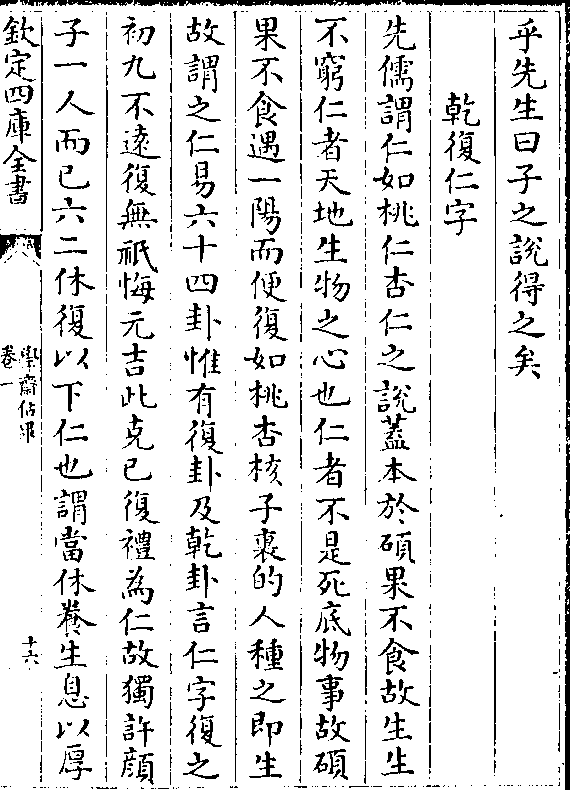 乎先生曰子之說得之矣
乾復仁字
先儒謂仁如桃仁杏仁之說蓋本於碩果不食故生生
不窮仁者天地生物之心也仁者不是死底物事故碩
果不食遇一陽而便復如桃杏核子裏的人種之即生
故謂之仁易六十四卦惟有復卦及乾卦言仁字復之
初九不遠復無祇悔元吉此克已復禮為仁故獨許顔
子一人而已六二休復以下仁也謂當休養生息以厚
欽定四庫全書
學齋佔畢
卷一
十六